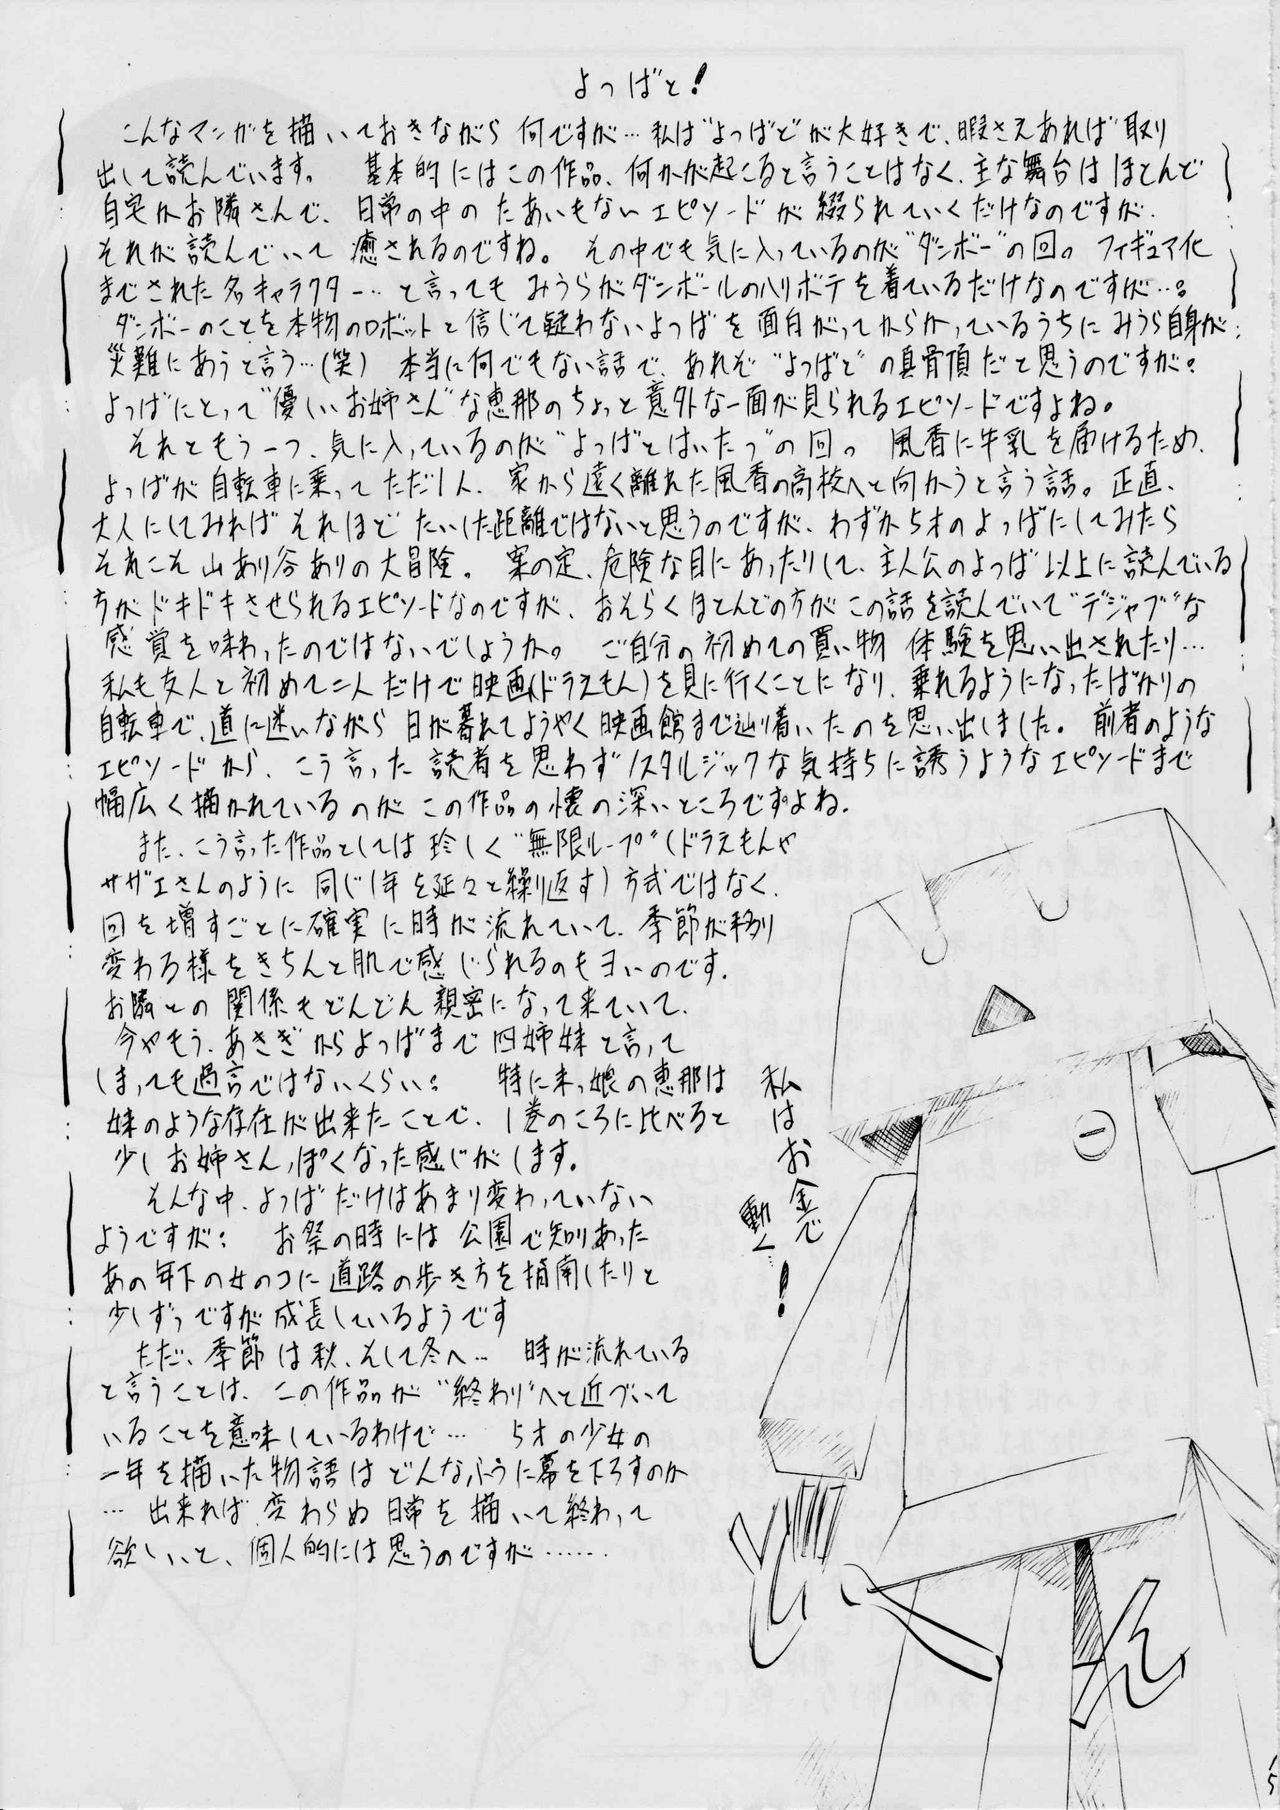 よつばと!
こんなマンガを描いておきながら 何ですが… 私は"よつばと"が大好きで、暇さえあれば取り
出して読んでいます。 基本的にはこの作品、何かが起こると言うことはなく、主な舞台はほとんど
自宅かお隣さんで、日常の中の たあいもないエピソードが綴られていくだけなのですが、
それが読んでいて癒されるのですね。 その中でも気に入っているのが"ダンボー"の回。 フィギュア化
までされた名キャラクター… と言っても みうらがダンボールのハリボテを着ているだけなのですが…。
ダンボーのことを本物のロボットと信じて疑わないよつばを面白がってからかっているうちにみうら自身が
災難にあうと言う…(笑) 本当に何でもない話で、あれぞ"よつばと"の真骨頂だと思うのですが。
よつばにとって"優しいお姉さん"な恵那のちょっと意外な一面が見られるエピソードですよね。
それともう一つ、気に入っているのが"よつばとはいたつ"の回。 風香に牛乳を届けるため、
よつばが自転車に乗ってただ1人、家から遠く離れた風香の高校へと向かうと言う話。正直、
大人にしてみればそれほど たいした距離ではないと思うのですが、わずか5才のよつばにしてみたら
それこそ山あり谷ありの大冒険。 案の定、危険な目にあったりして、主人公のよつば以上に読んでいる
方がドキドキさせられるエピソードなのですが、おそらくほとんどの方がこの話を読んでいて"デジャブ"な
感覚を味わったのではないでしょうか。 ご自分の初めての買い物体験を思い出されたり…
私も友人と初めて二人だけで映画(ドラえもん)を見に行くことになり、乗れるようになったばかりの
自転車で、道に迷いながら 日が暮れてようやく映画館まで辿り着いたのを思い出しました。 前者のような
エピソードから、こう言った読者を思わずノスタルジックな気持ちに誘うようなエピソードまで
幅広く描かれているのが この作品の懐の深いところですよね。
また、こう言った作品としては珍しく"無限ループ"(ドラえもんや
サザエさんのように 同じ1年を延々と繰り返す)方式ではなく、
回を増すごとに確実に時が流れていて、季節が移り
変わる様をきちんと肌で感じられるのもヨいのです。
お隣との関係もどんどん親密になって来ていて、
今やもう、あさぎからよつばまで四姉妹と言って
しまっても過言ではないくらい。 特に末っ娘の恵那は
妹のような存在が出来たことで、1巻のころに比べると
少しお姉さんっぽくなった感じがします。
そんな中、よつばだけはあまり変わっていない
ようですが。 お祭の時には公園で知りあった
あの年下の女のコに道路の歩き方を指南したりと
少しずつですが成長しているようです
ただ、季節は秋、そして冬へ… 時が流れている
と言うことは、この作品が"終わり"へと近づいて
いることを意味しているわけで… 5才の少女の
一年を描いた物語はどんなふうに幕を下ろすのか
… 出来れば、変わらぬ日常を描いて終わって
欲しいと、個人的には思うのですが……
私はお金で
動く…!
15